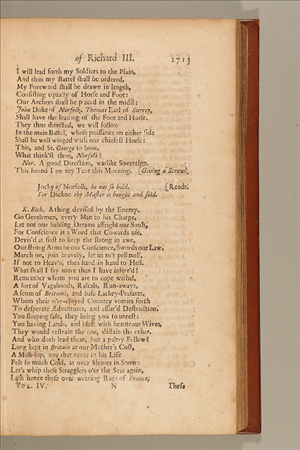 of Richard III. 1713
I will lead forth my Soldiers to the Plain,
And thus my Battel shall be ordered.
My Foreward shall be drawn in length,
Consisting equally of Horse and Foot:
Our Archers shall be placed in the midst;
John Duke of Norfolk, Thomas Earl of Surrey,
Shall have the leading of the Foot and Horse.
They thus directed, we will follow
In the main Battel, whose puissance on either side
Shall be well winged with our chiefest Horse:
This, and St. George to boot.
What think'st thou, Norfolk?
Nor. A good Direction, warlike Sovereign.
This found I on my Tent this Morning. [Giving a Scrowl.
Jocky of Norfolk, be not so bold, [Reads.
For Dickon thy Master is bought and sold.
K. Rich. A thing devised by the Enemy.
Go Gentlemen, every Man to his Charge,
Let not our babling Dreams affright our Souls,
For Conscience is a Word that Cowards use,
Devis'd at first to keep the strong in awe,
Our strong Arms be our Conscience, Swords our Law.
March on, join bravely, let us to't pell-mell,
If not to Heav'n, then hand in hand to Hell.
What shall I say more than I have inferr'd?
Remember whom you are to cope withal,
A sort of Vagabonds, Rascals, Run-aways,
A scum of Britains, and base Lackey-Peasants,
Whom their o'er-cloyed Country vomits forth
To desperate Adventures, and assur'd Destruction.
You sleeping safe, they bring you to unrest:
You having Lands, and blest with beauteous Wives,
They would restrain the one, distain the other.
And who doth lead them, but a paltry Fellow?
Long kept in Britain at our Mother's Cost,
A Milk-sop, one that never in his Life
Felt so much Cold, as over Shooes in Snow:
Let's whip these Stragglers o'er the Seas again,
Lash hence these over-weening Rags of France,
Vol. IV. N These